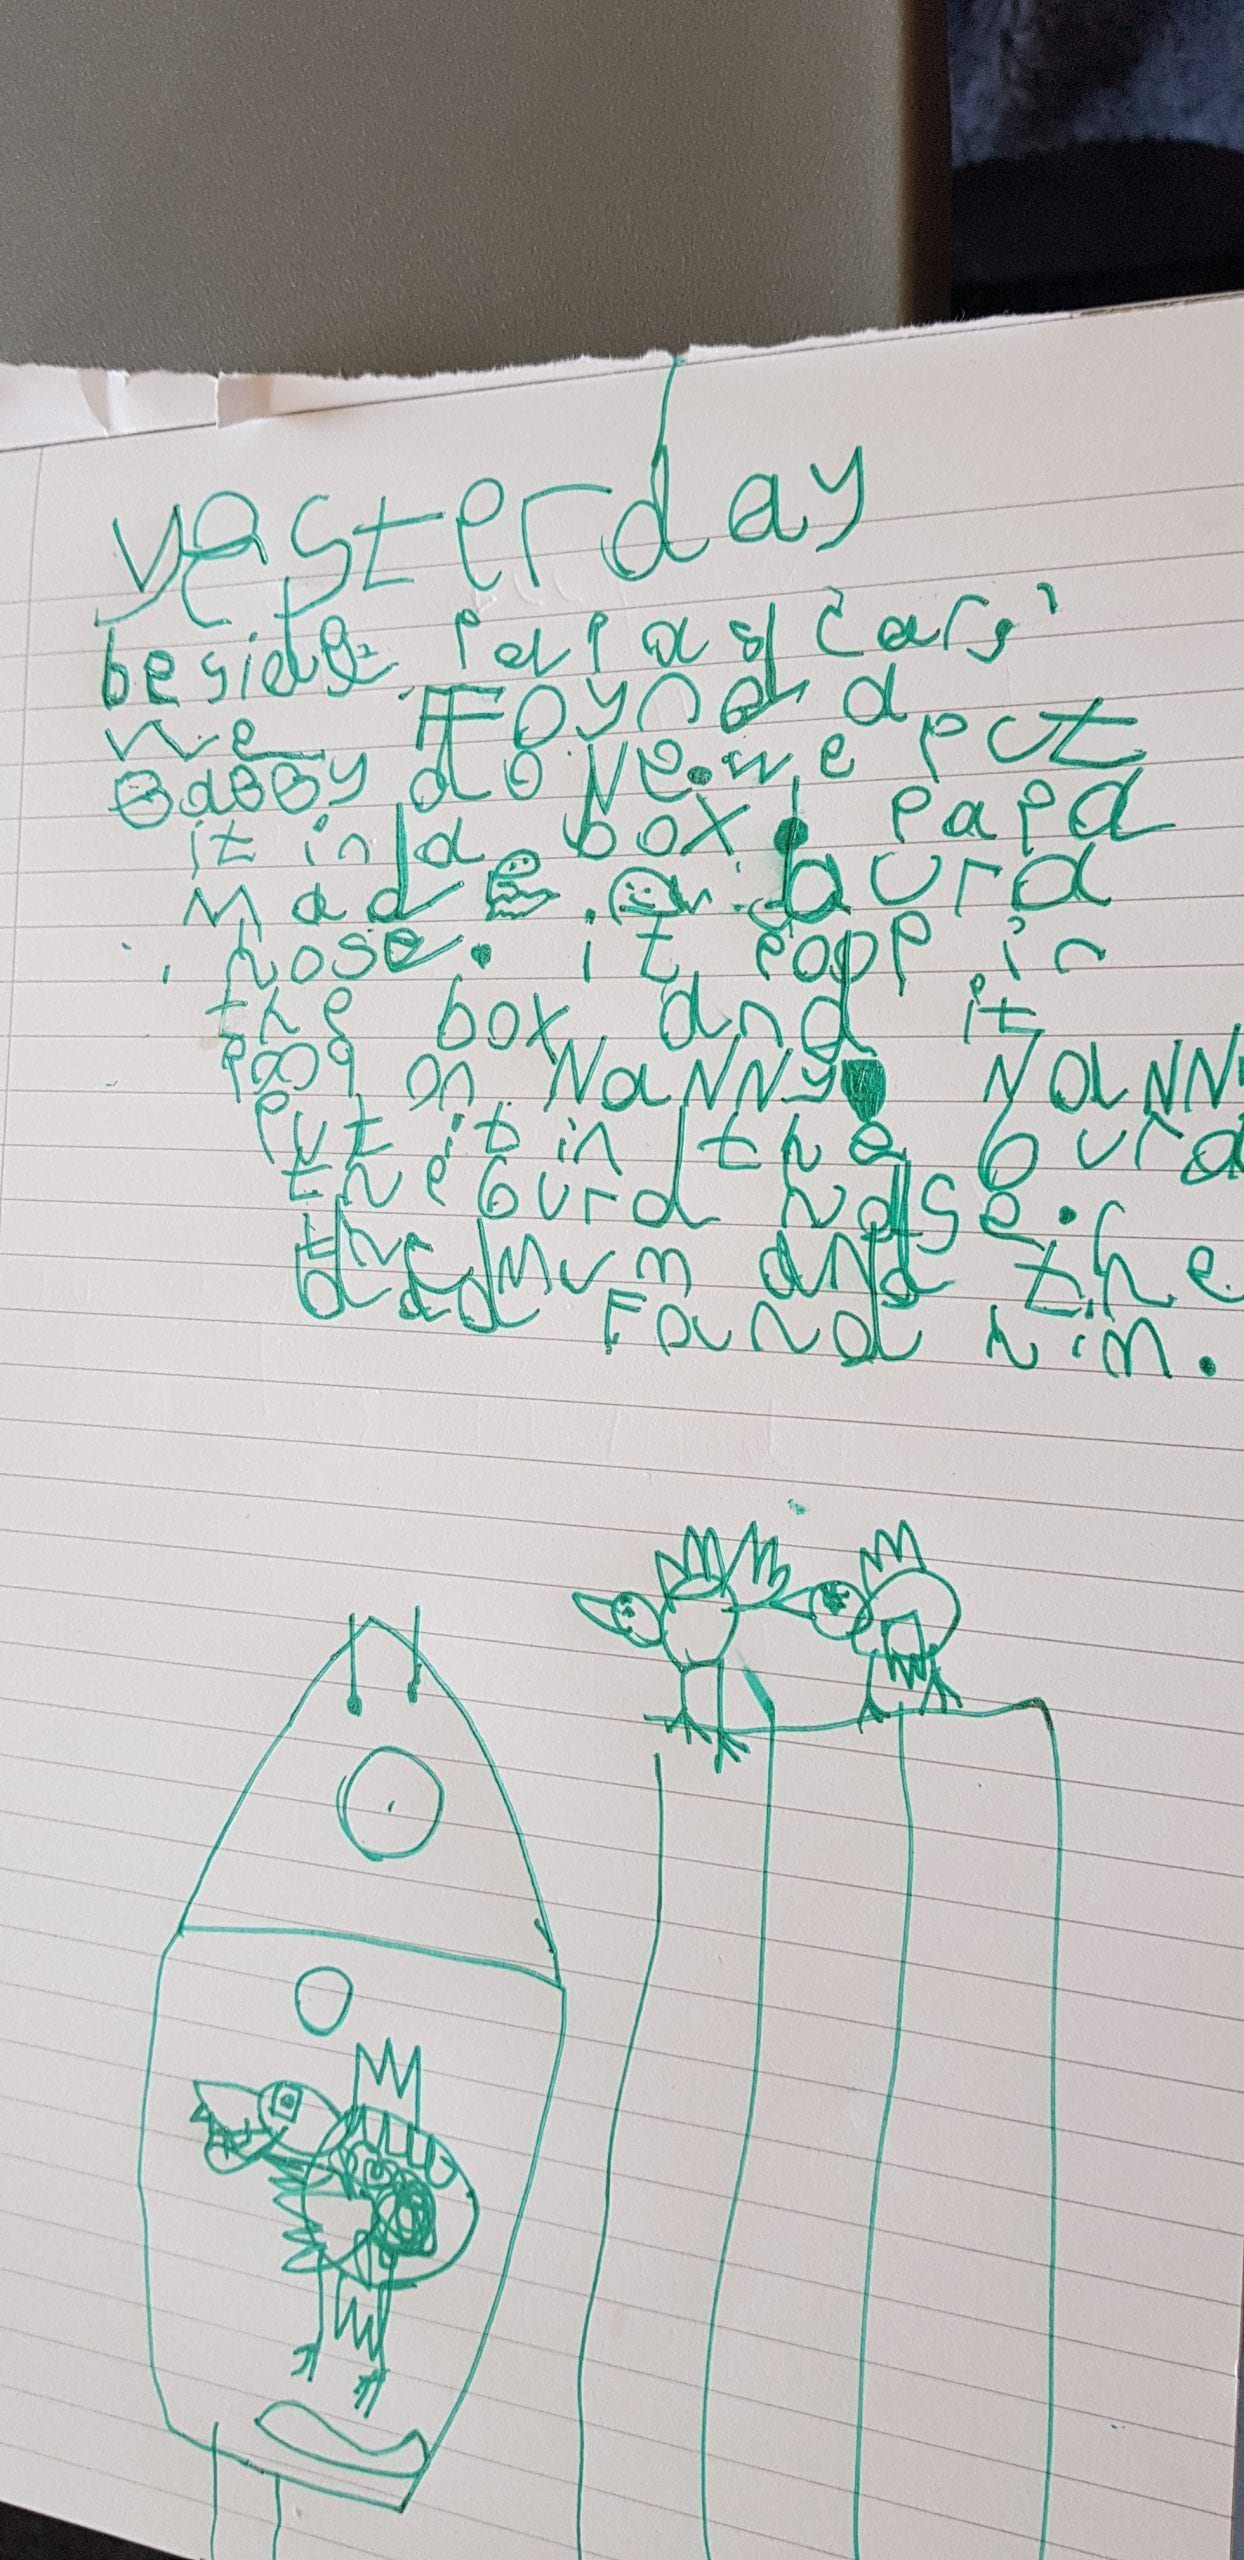 yesterday
beside Papas Cars
we Foynd a
BaBBy dove. we put
it in a box. Papa
Mad a burd
hose. it poop in
the box and it
poop on NaNNy. NaNN
Put it in the burd
the burd hose.
the Mum and the
dad Found him.